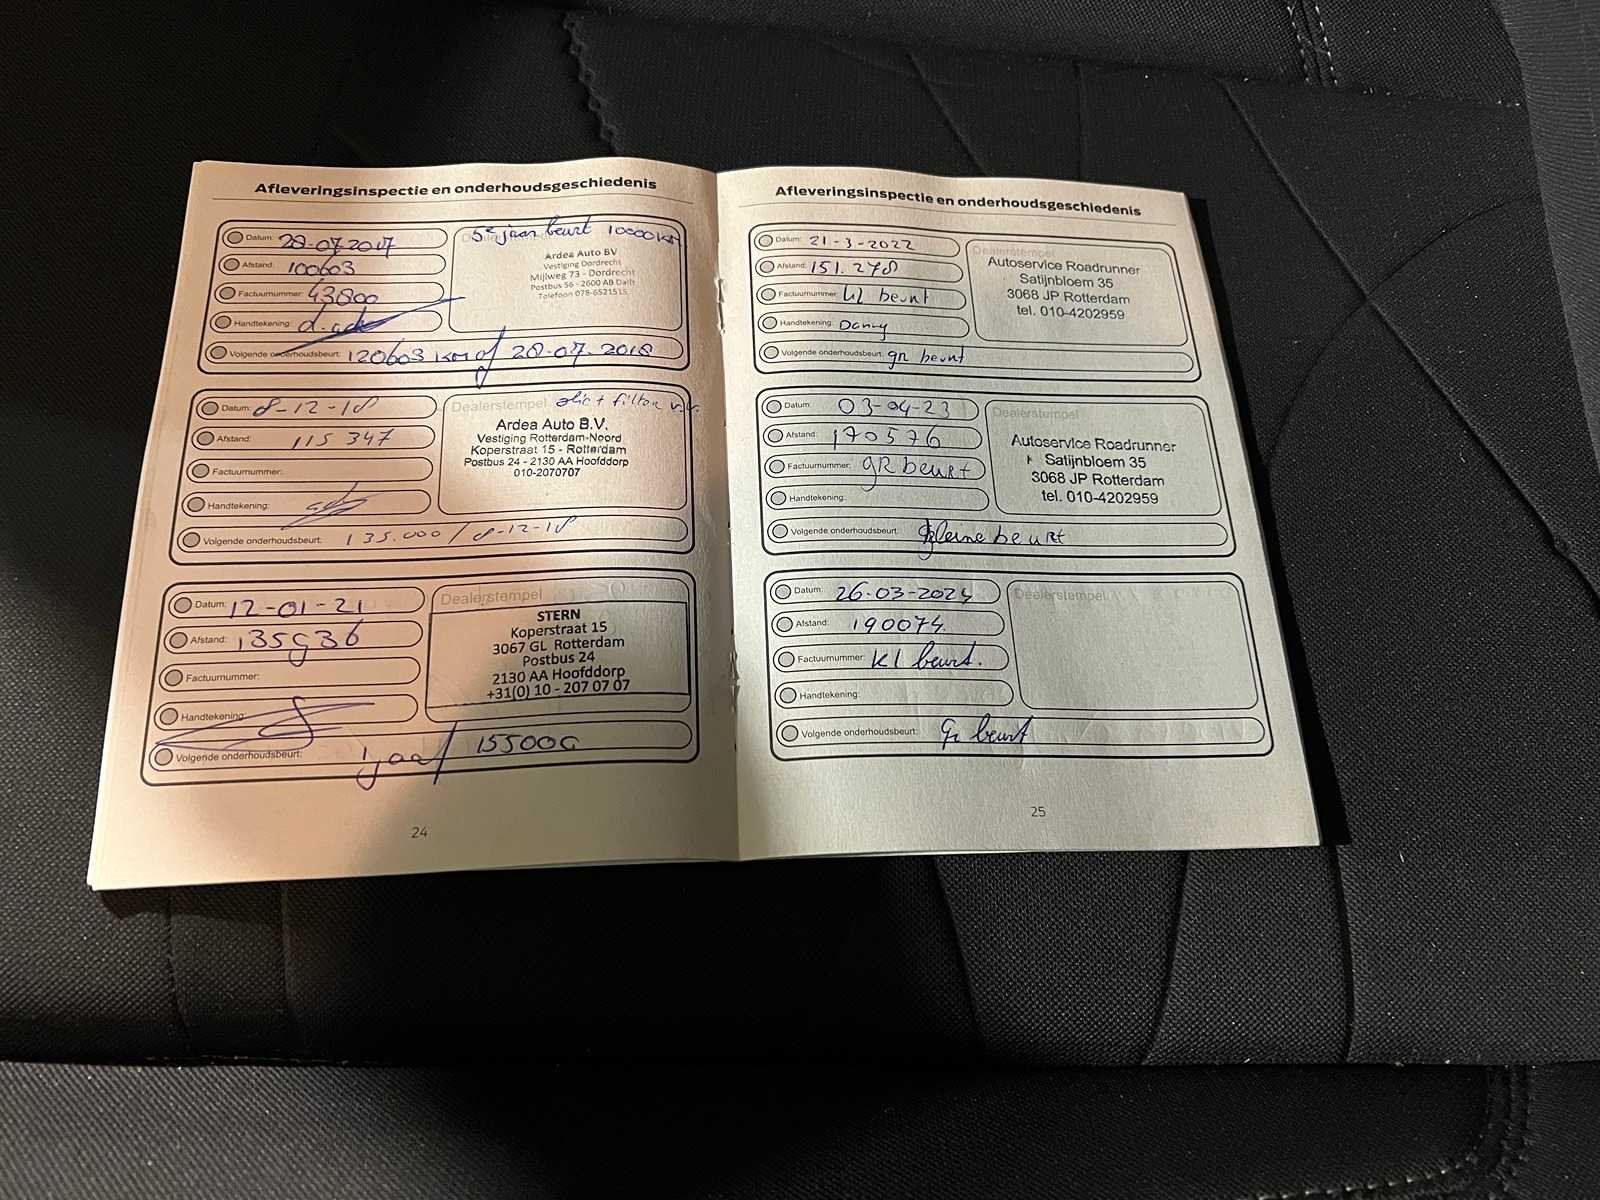 Afleveringsinspectie en onderhoudsgeschiedenis
Datum: 28-07-2017
Afstand: 100603
Factuurnummer: 43800
Handtekening:
Volgende onderhoudsbeurt: 120603 KM of 28-07-2018
5e jaar beurt 10000 KM
Ardea Auto BV
Vestiging Dordrecht
Mijlweg 73 - Dordrecht
Postbus 56 - 2600 AB Delft
Telefoon 078-6521515
Datum: 8-12-18
Afstand: 115 347
Factuurnummer:
Handtekening:
Volgende onderhoudsbeurt: 135.000 / 8-12-18
Dealerstempel olie + filter
Ardea Auto B.V.
Vestiging Rotterdam-Noord
Koperstraat 15 - Rotterdam
Postbus 24 - 2130 AA Hoofddorp
010-2070707
Datum: 12-01-21
Afstand: 135936
Factuurnummer:
Handtekening:
Volgende onderhoudsbeurt: 1 jaar / 155000
Dealerstempel
STERN
Koperstraat 15
3067 GL Rotterdam
Postbus 24
2130 AA Hoofddorp
+31(0) 10 - 207 07 07
24
Afleveringsinspectie en onderhoudsgeschiedenis
Datum: 21-3-2022
Afstand: 151.278
Factuurnummer: kl beurt
Handtekening: Danny
Volgende onderhoudsbeurt: gr beurt
Dealerstempel
Autoservice Roadrunner
Satijnbloem 35
3068 JP Rotterdam
tel. 010-4202959
Datum: 03-04-23
Afstand: 170576
Factuurnummer: gR beurt
Handtekening:
Volgende onderhoudsbeurt: kleine beurt
Dealerstempel
Autoservice Roadrunner
Satijnbloem 35
3068 JP Rotterdam
tel. 010-4202959
Datum: 26-03-2024
Afstand: 190074
Factuurnummer: Kl beurt.
Handtekening:
Volgende onderhoudsbeurt: Gr beurt
Dealerstempel
25